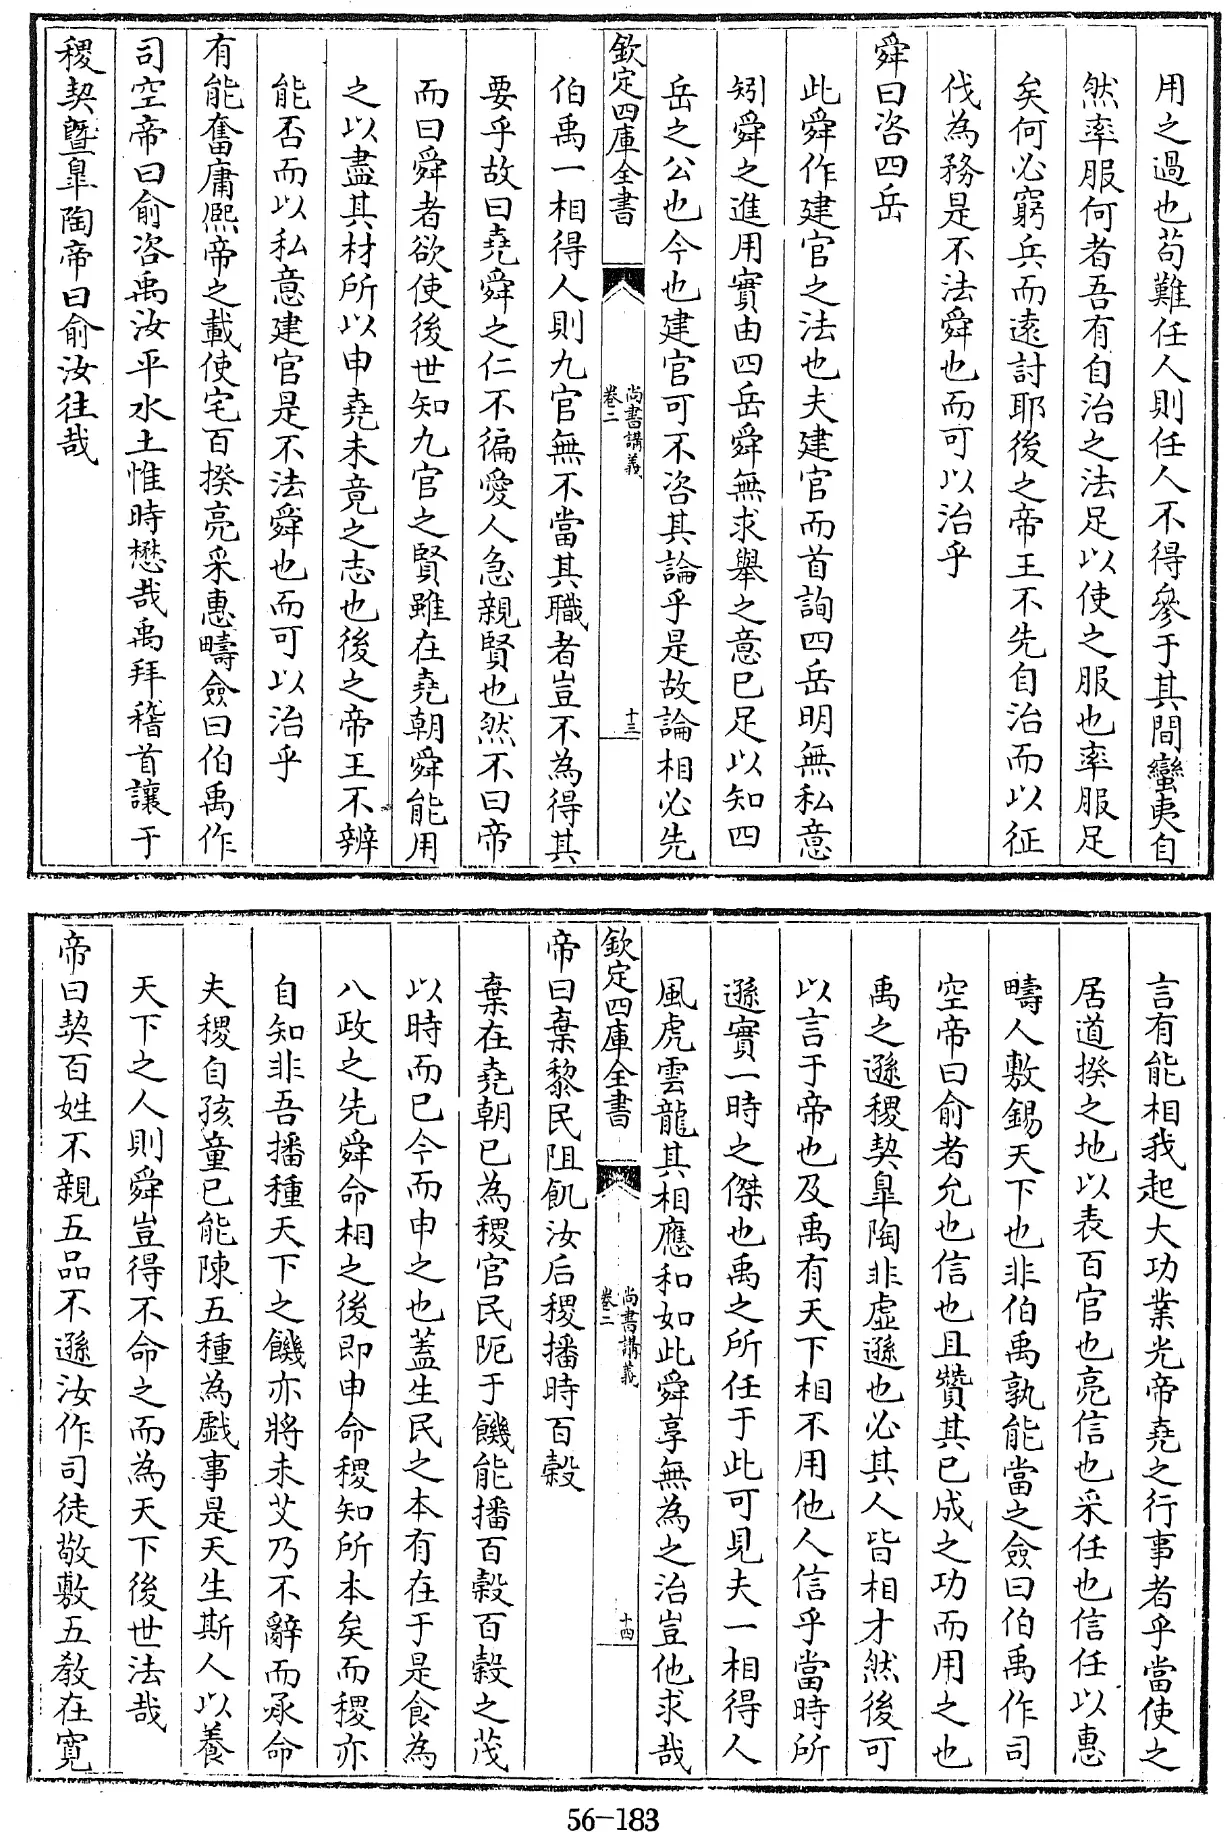 用之過也苟難任人則任人不得參于其間蠻夷自
然率服何者吾有自治之法足以使之服也率服足
矣何必窮兵而遠討耶後之帝王不先自治而以征
伐為務是不法舜也而可以治乎
舜曰咨四岳
此舜作建官之法也夫建官而首詢四岳明無私意
矧舜之進用實由四岳舜無求舉之意已足以知四
岳之公也今也建官可不咨其論乎是故論相必先
欽定四庫全書
尚書講義
卷二
十三
伯禹一相得人則九官無不當其職者豈不為得其
要乎故曰堯舜之仁不徧愛人急親賢也然不曰帝
而曰舜者欲使後世知九官之賢雖在堯朝舜能用
之以盡其材所以申堯未竟之志也後之帝王不辨
能否而以私意建官是不法舜也而可以治乎
有能奮庸熙帝之載使宅百揆亮采惠疇僉曰伯禹作
司空帝曰俞咨禹汝平水土惟時懋哉禹拜稽首讓于
稷契暨皋陶帝曰俞汝往哉
言有能相我起大功業光帝堯之行事者乎當使之
居道揆之地以表百官也亮信也采任也信任以惠
疇人敷錫天下也非伯禹孰能當之僉曰伯禹作司
空帝曰俞者允也信也且贊其已成之功而用之也
禹之遜稷契皋陶非虛遜也必其人皆相才然後可
以言于帝也及禹有天下相不用他人信乎當時所
遜實一時之傑也禹之所任于此可見夫一相得人
風虎雲龍其相應和如此舜享無為之治豈他求哉
欽定四庫全書
尚書講義
卷二
十四
帝曰棄黎民阻飢汝后稷播時百穀
棄在堯朝已為稷官民阨于饑能播百穀百穀之茂
以時而已今而申之也蓋生民之本有在于是食為
八政之先舜命相之後即申命稷知所本矣而稷亦
自知非吾播種天下之饑亦將未艾乃不辭而承命
夫稷自孩童已能陳五種為戲事是天生斯人以養
天下之人則舜豈得不命之而為天下後世法哉
帝曰契百姓不親五品不遜汝作司徒敬敷五教在寬
56-183